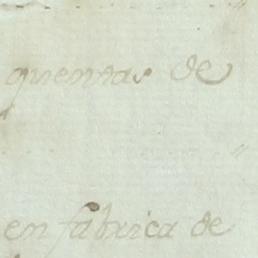 quentas de
en fabrica de